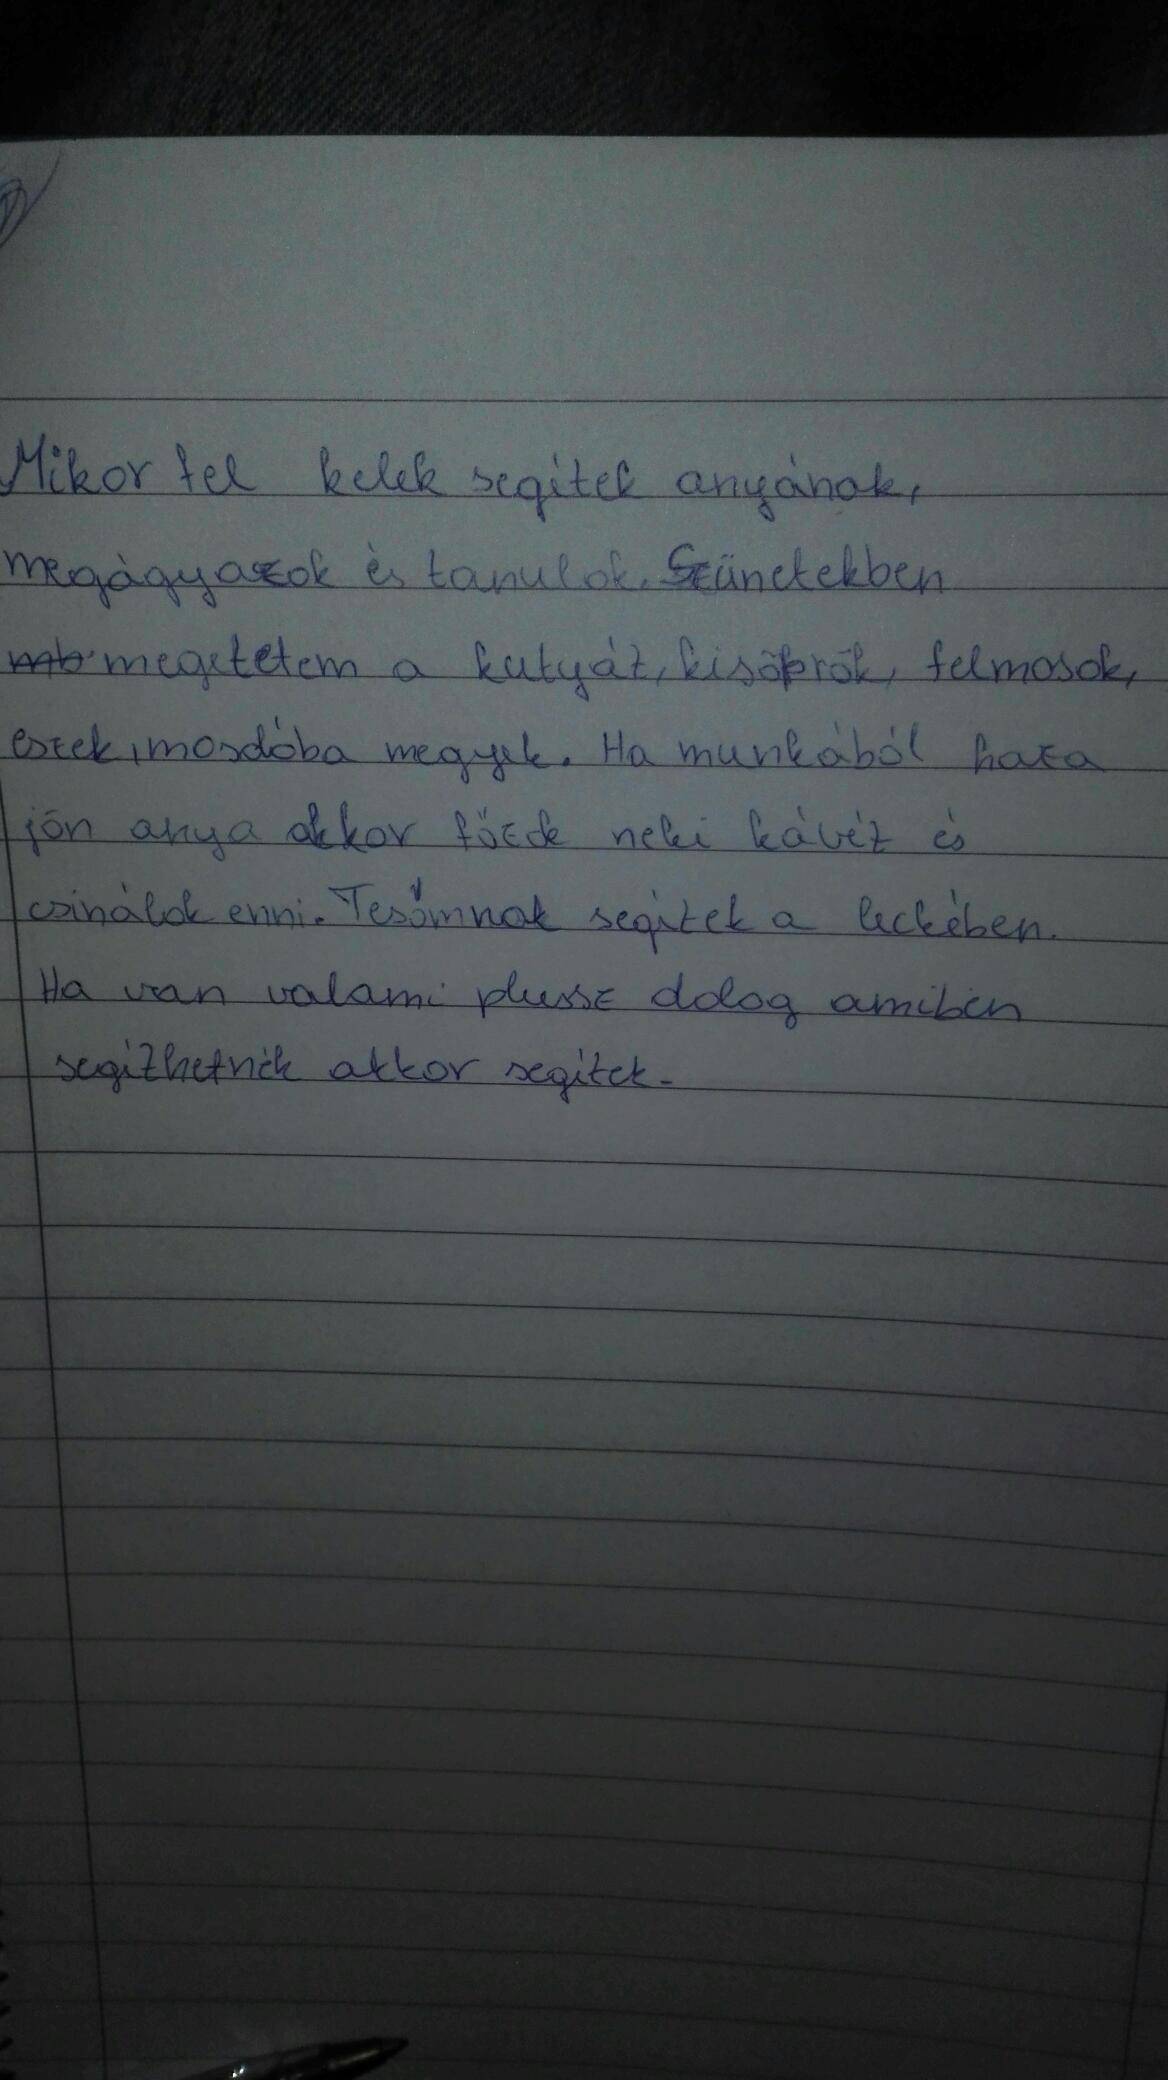 Mikor fel kelek segítek anyának,
megágyazok és tanulok. Szünetekben
megetetem a kutyát, kisöprök, felmosok,
eszek, mosdóba megyek. Ha munkából haza
jön anya akkor főzök neki kávét és
csinálok enni. Tesómnak segítek a leckében.
Ha van valami plussz dolog amiben
segithetnék akkor segítek.